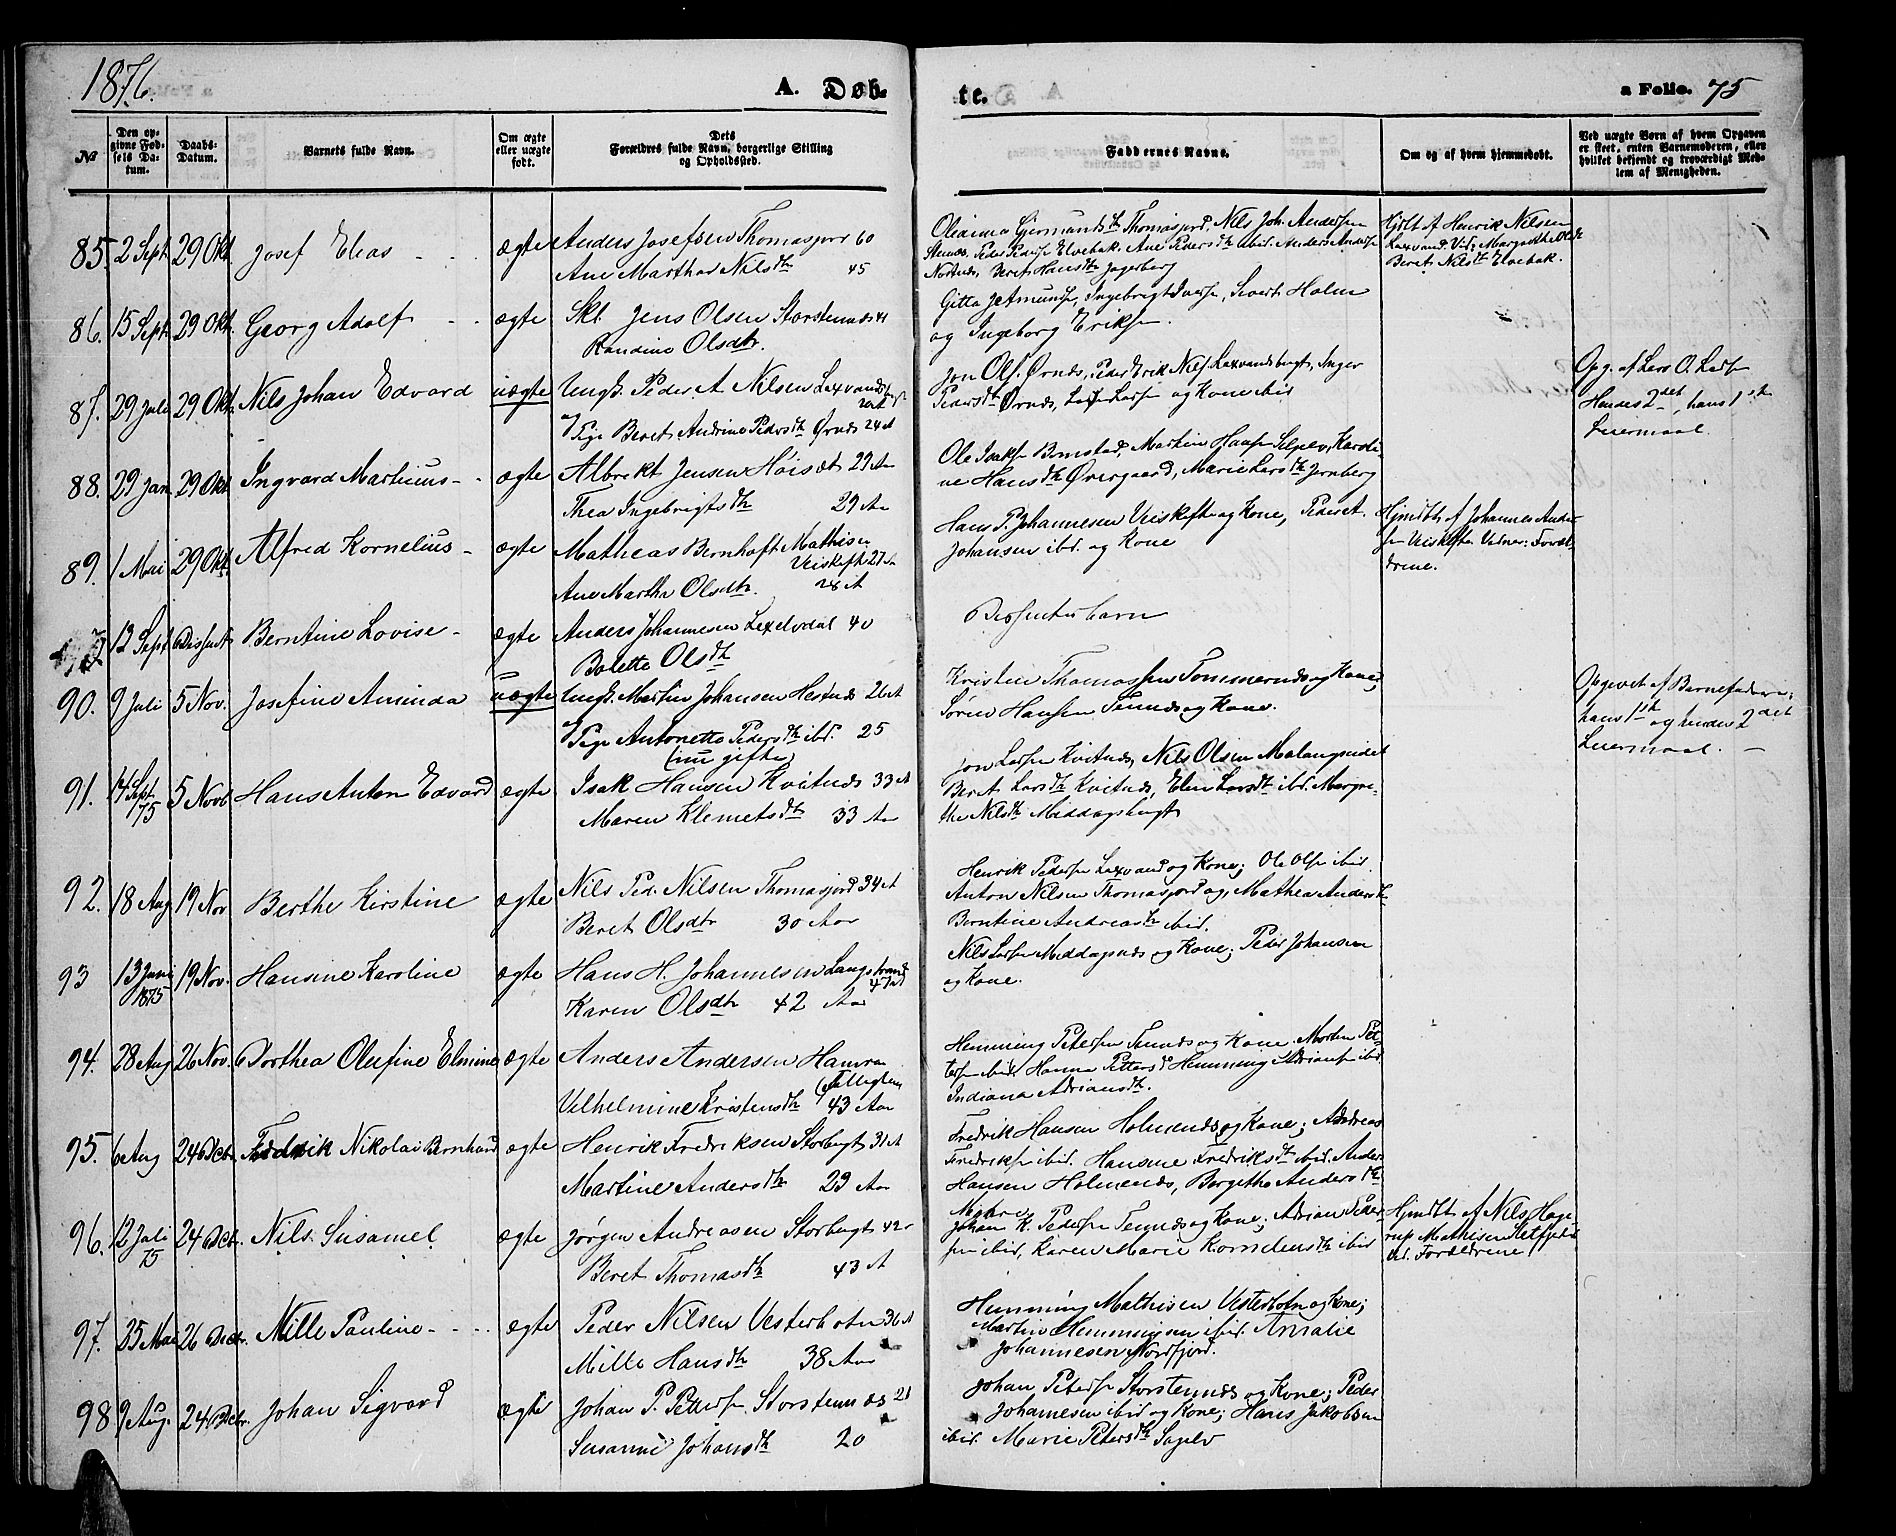 1876.
A. Døb-
te.
a Folio. 75
№
Den op-
givne Fød-
sels Da-
tum.
Daabs-
Datum.
Barnets fulde Navn.
Om ægte
eller uægte
født.
Dets
Forældres fulde Navn, borgerlige Stilling
og Opholdssted.
Faddernes Navne.
Om og af hvem hjemmedøbt.
Ved uægte Børn af hvem Opgaven
er skeet, enten Barnemoderen, eller
hvilket bekjendt og troværdigt Med-
lem af Menigheden.
85. 2 Sept 29 Okt. Josef Elias - - ægte Anders Josefsen Thomasjord 60
Ane Martha Nilsdtr 45
Thomasjord, Nils Joh. Andersen
Elvebak. Ane Pedersdtr ibid. Anders Anders
Beret Hansdtr
Hjdt af Henrik Nilsen
Laxvand
Beret Nilsdtr Elvebak.
86. 15 Sept. 29 Okt. Georg Adolf - - ægte Skl. Jens Olsen Storstennes 41
Randine Olsdtr.
Ingebrigt Iversen, Sivert Holm
og Ingeborg Eriksen.
87. 29 Juli 29 Okt. Nils Johan Edvard uægte Ungk. Peder A. Nilsen Laxvandsbugt
Pige Beret Andrine Pedersdtr Ørnes 24 A
Jon Ols. Ørnes, Peder Erik Nils. Laxvandsbugt, Inger
Pedersdtr Ørnes, Lars Larsen og Kone ibid
Opg. af Lars O. Larsen
Hendes 2det, hans 1ste
Leiermaal.
88. 29 Jan 29 Okt. Ingvard Martinus - - ægte Albrekt Jensen 29 Aar
Thea Ingebrigtsdtr 29 Aar
Ole Isaksen, Martin Hansen Selselv, Karoli-
ne Hansdtr Øvergaard, Marie Larsdtr Jernberg
89. 1 Mai 29 Okt. Alfred Kornelius - ægte Matheas Bernhoft Mathisen
Veiskifte 27 Aar
Ane Martha Olsdtr. 28 A
Hans P. Johannesen Veiskifte og Kone, Peder
Johansen ibd. og Kone
Hjmdbt. af Johannes Ander-
sen Veiskifte. Vidner: Foræl-
drene.
12 Sept Dissent. Berntine Lovise - ægte Anders Johannesen Lexelvdal 40
Bolette Olsdtr
Dissenterbarn
90. 9 Juli 5 Nov. Josefine Aminda uægte Ungk. Martin Johansen Hestnes 26 A
Pige Antonette Pedersdtr ibd. 25
(nu gifte)
Kristen Thomassen Tømmernes og Kone,
Søren Hansen Tennes og Kone.
Opgivet af Barnefaderen;
hans 1ste og hendes 2det
Leiermaal. -
91. 14 Sept. 75 5 Novb. Hans Anton Edvard ægte Isak Hansen Kvitnes 33 A
Maren Klemetsdtr 33 Aar
Jon Larsen Kvitnes, Nils Olsen Malangseidet
Beret Larsdtr Kvitnes, Elen Larsdtr ibid. Margre-
the Nilsdtr Middagsbugt
92. 18 Aug 19 Nov Berthe Kirstine ægte Nils Ped. Nilsen Thomasjord 34 A
Beret Olsdtr 30 Aar
Henrik Pedersen Laxvand og Kone; Ole Olsen ibid.
Anton Nilsen Thomasjord og Mathea Andersdtr
Berntine Andreasdtr ibid.
93 13 Juni 1875 19 Nov. Hansine Karoline ægte Hans H. Johannesen Langstrand
47 A
Karen Olsdtr 42 Aar
Nils Larsen Middagsnes og Kone; Peder Johansen
og Kone.
94. 28 Aug 26 Nov. Dorthea Olufine Elmine ægte Anders Andersen Hamra
Vilhelmine Kristensdtr 43 Aar
Hemming Petersen Tennes og Kone. Morten Pet-
tersen ibid. Hanna Pettersd Hemming Adriansen ibid
Indiana Adriansdtr.
95. 6 Aug 24 Decbr. Fredrik Nikolai Bernhard ægte Henrik Fredriksen Storbugt 31 A
Martine Andersdtr 29 Aar
Fredrik Hansen Holmenes og Kone; Andreas
Fredriksen ibid. Hansine Fredriksdtr ibid. Anders
Hansen Holmenes, Bergitha Andersdtr
96. 12 Juli 75 24 Decbr. Nils Susamel ægte Jørgen Andreasen Storbugt 42
Beret Thomasdtr 43 A
Johan K. Pedersen Tennes og Kone; Adrian Peder-
sen ibid, Karen Marie Korneliusdtr ibid
Hjmdbt. af Nils Hage-
rup Mathisen Sletfjeld
Vid. Forældrene
97. 25 Mai 26 Decbr. Mille Pauline - - - ægte Peder Nilsen Vesterbotn 36 A
Mille Hansdtr 38 Aar
Hemming Mathisen Vesterbotn og Kone;
Martin Hemmingsen ibid. Amalie
Johannesen Nordfjord.
98 9 Aug. 24 Decbr. Johan Sigvard ægte Johan P. Pettersen Storstennes 21
Susanne Johansdtr 20
Johan Petersen Storstennes og Kone; Peder
Johannesen ibid og Kone; Hans Jakobsen
ibid. Marie Petersdtr Sagelv